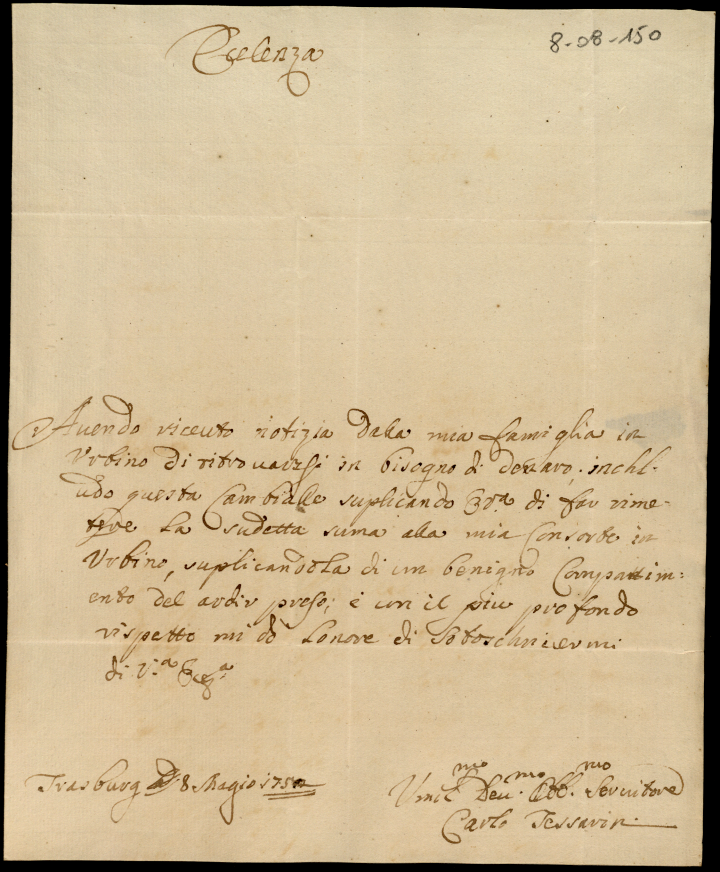 8-08-150
Ecelenza
Avendo riceuto notizia Dalla mia famiglia in
Vrbino di ritrovarsi in bisogno di denaro, inchl-
udo questa Cambialle suplicando di far rime-
tere la sudetta suma alla mia Consorte in
Vrbino, suplicandola di un benigno Compattim:
ento del ardir preso; è con il piu profondo
rispetto mi dò lonore di Sotoscrivermi
di V.ª Ecz.ª
Trasburg 8 Magio
Umil.mo Deu.mo Obb.mo Servitore
Carlo Tessarin